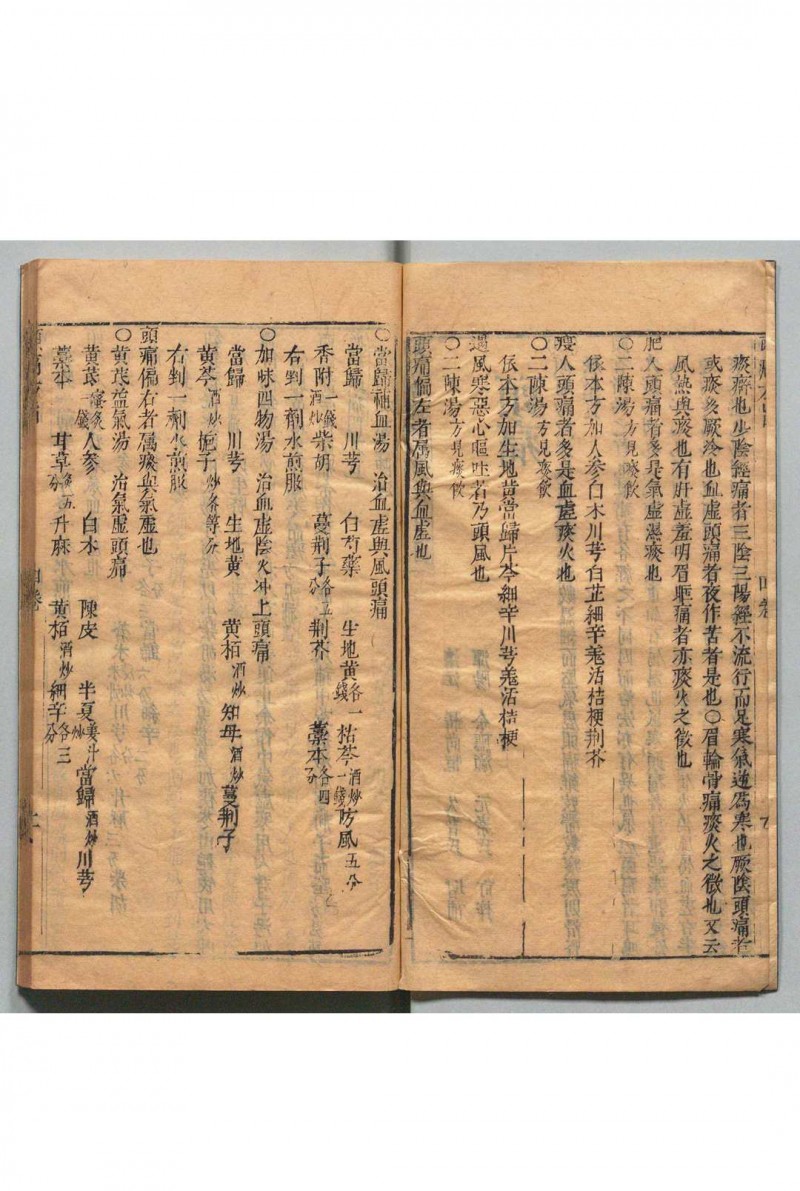 痰癖也少陰經痛者三陰三陽經不流行而足寒氣逆為寒也厥陰頭痛者
或痰多厥冷也血虛頭痛者夜作苦者是也○眉輪骨痛痰火之徵也又云
風熱與痰也有肝虛羞明眉眶痛者亦痰火之徵也
肥人頭痛者多是氣虛濕痰也
○二陳湯方見痰飲
依本方加人參白术川芎白芷細辛羗活桔梗荆芥
瘦人頭痛者多是血虛痰火也
○二陳湯方見痰飲
依本方加生地黄當歸片芩細辛川芎羗活桔梗
遇風寒惡心嘔吐者乃頭風也
○二陳湯方見痰飲
頭痛偏左者屬風與血虛也
四卷
○當歸補血湯 治血虛與風頭痛
當歸 川芎 白芍藥 生地黄各一錢 枯芩酒炒一錢 防風五分
香附酒炒一錢 柴胡 蔓荆子各五分 荆芥 藁本各四分
右剉一劑水煎服
○加味四物湯 治血虛陰火冲上頭痛
當歸 川芎 生地黄 黄栢酒炒 知母酒炒 蔓荆子
黄芩酒炒 梔子炒各等分
右剉一劑水煎服
頭痛偏右者屬痰與氣虛也
○黄茋益氣湯 治氣虛頭痛
黄茋一錢蜜炙 人參 白术 陳皮 半夏姜汁炒 當歸酒炒 川芎
藁本 甘草各五分 升麻 黄栢酒炒 細辛各三分
四卷